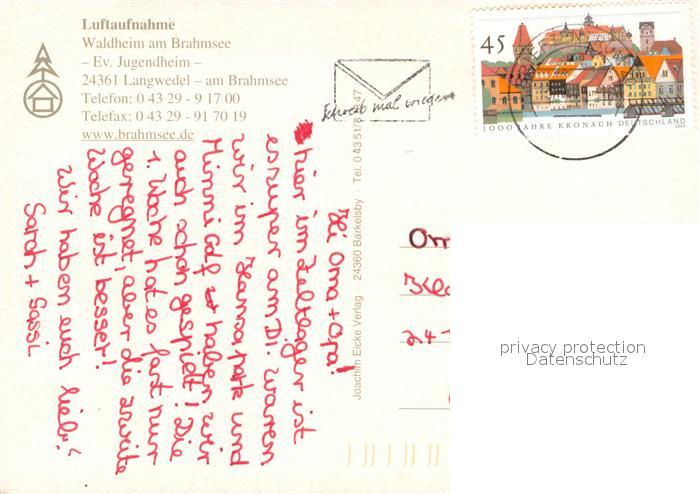 Luftaufnahme
Waldheim am Brahmsee
– Ev. Jugendheim –
24361 Langwedel – am Brahmsee
Telefon: 0 43 29 - 9 17 00
Telefax: 0 43 29 - 91 70 19
www.brahmsee.de
Schreib mal wieder
45
1000 JAHRE KRONACH DEUTSCHLAND
2003
Hi Oma + Opa!
hier im Zeltlager ist
es super am DI. waren
wir im Hansa park und
Minni Golf haben wir
auch schon gespielt! Die
1. Woche hat es fast nur
geregnet, aber die zweite
Woche ist besser!
Wir haben euch lieb!
Sarah + Sassi
Joachim Eicke Verlag · 24360 Barkelsby · Tel. 0 43 51/8 47
Om
24
privacy protection
Datenschutz